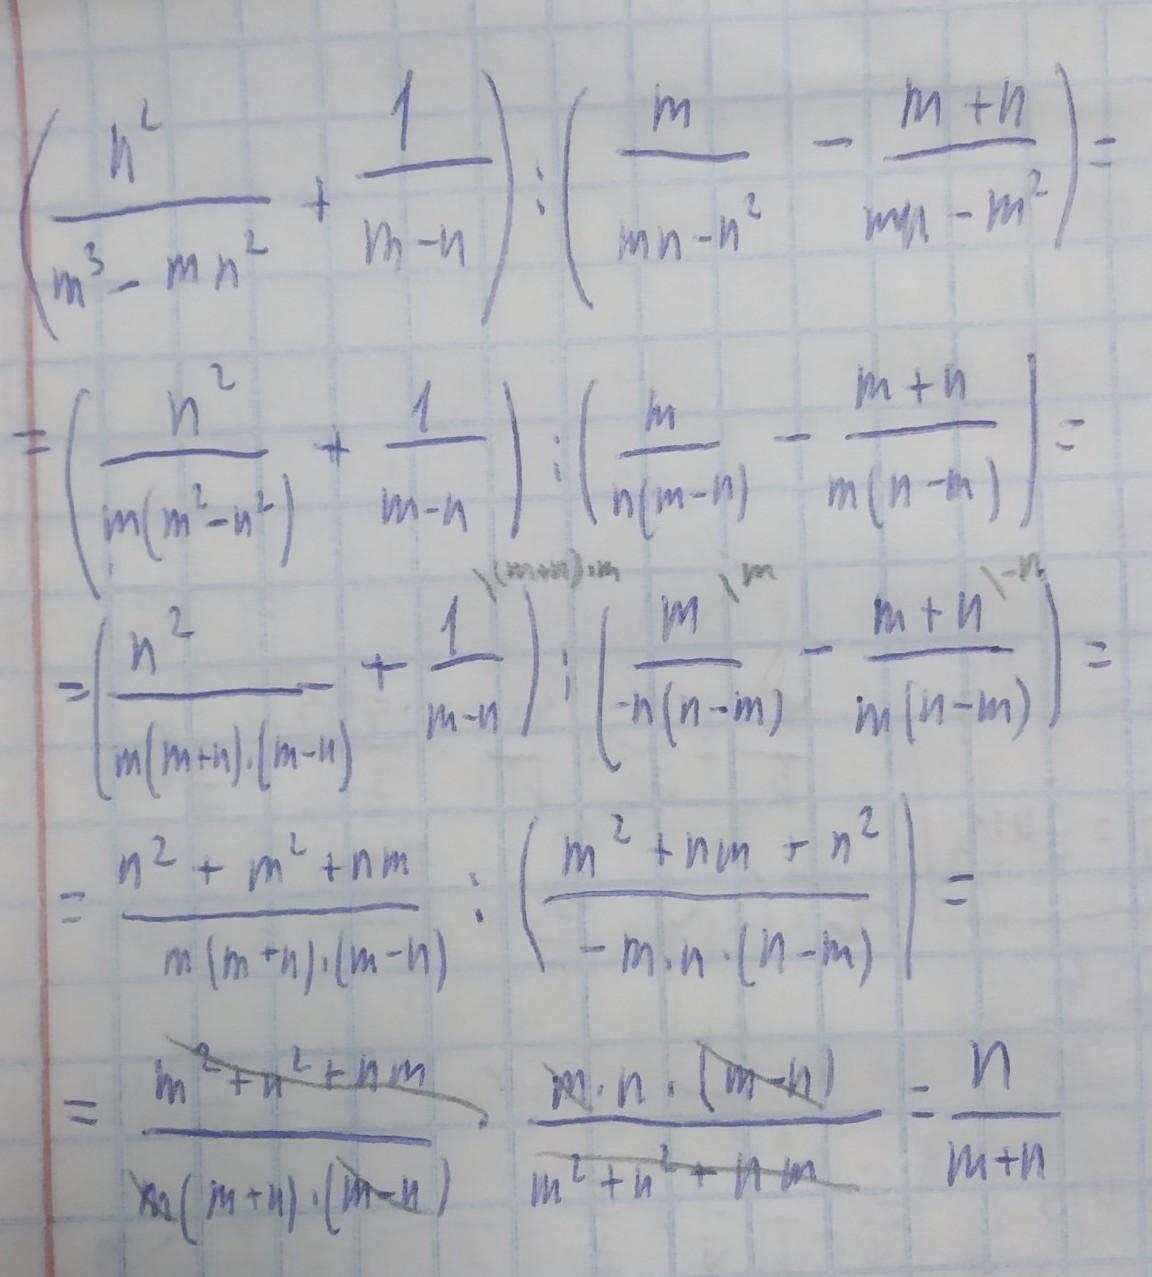 (n²/(m³ - mn²) + 1/(m - n)) : (m/(mn - n²) - (m + n)/(mn - m²)) =
= (n²/(m(m² - n²)) + 1/(m - n)) : (m/(n(m - n)) - (m + n)/(m(n - m))) =
\(m+n)·m \m \-n
= (n²/(m(m+n)·(m-n)) + 1/(m-n)) : (m/(-n(n-m)) - (m + n)/(m(n-m))) =
= (n² + m² + nm)/(m(m+n)·(m-n)) : ((m² + nm + n²)/(-m·n·(n-m))) =
= (m² + n² + nm)/(m(m+n)·(m-n)) · (m·n·(m-n))/(m² + n² + nm) = n/(m+n)